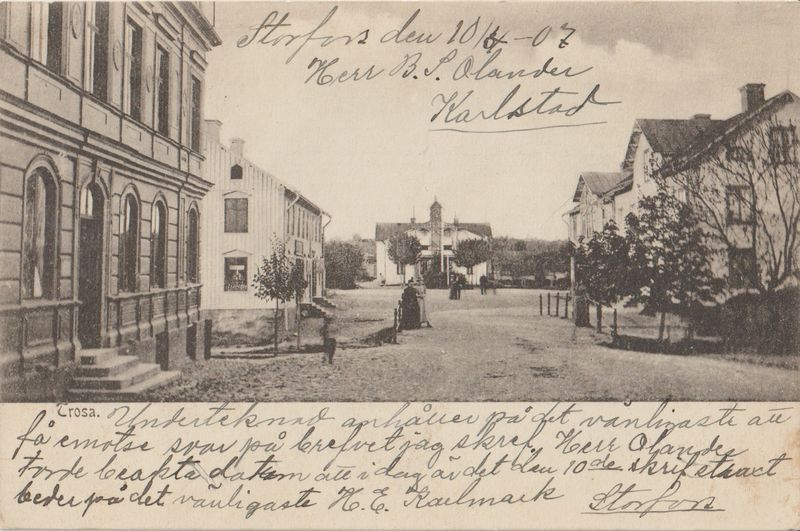 Storfors den 10/4-07
Herr B. S. Olander
Karlstad
Trosa.
Underteknad anhåller på det vänligaste att
få emotse svar på brefvet jag skref. Herr Olander
torde beakta datum att i dag är det den 10de skrif straxt
beder på det vänligaste H. E. Karlmark
Storfors